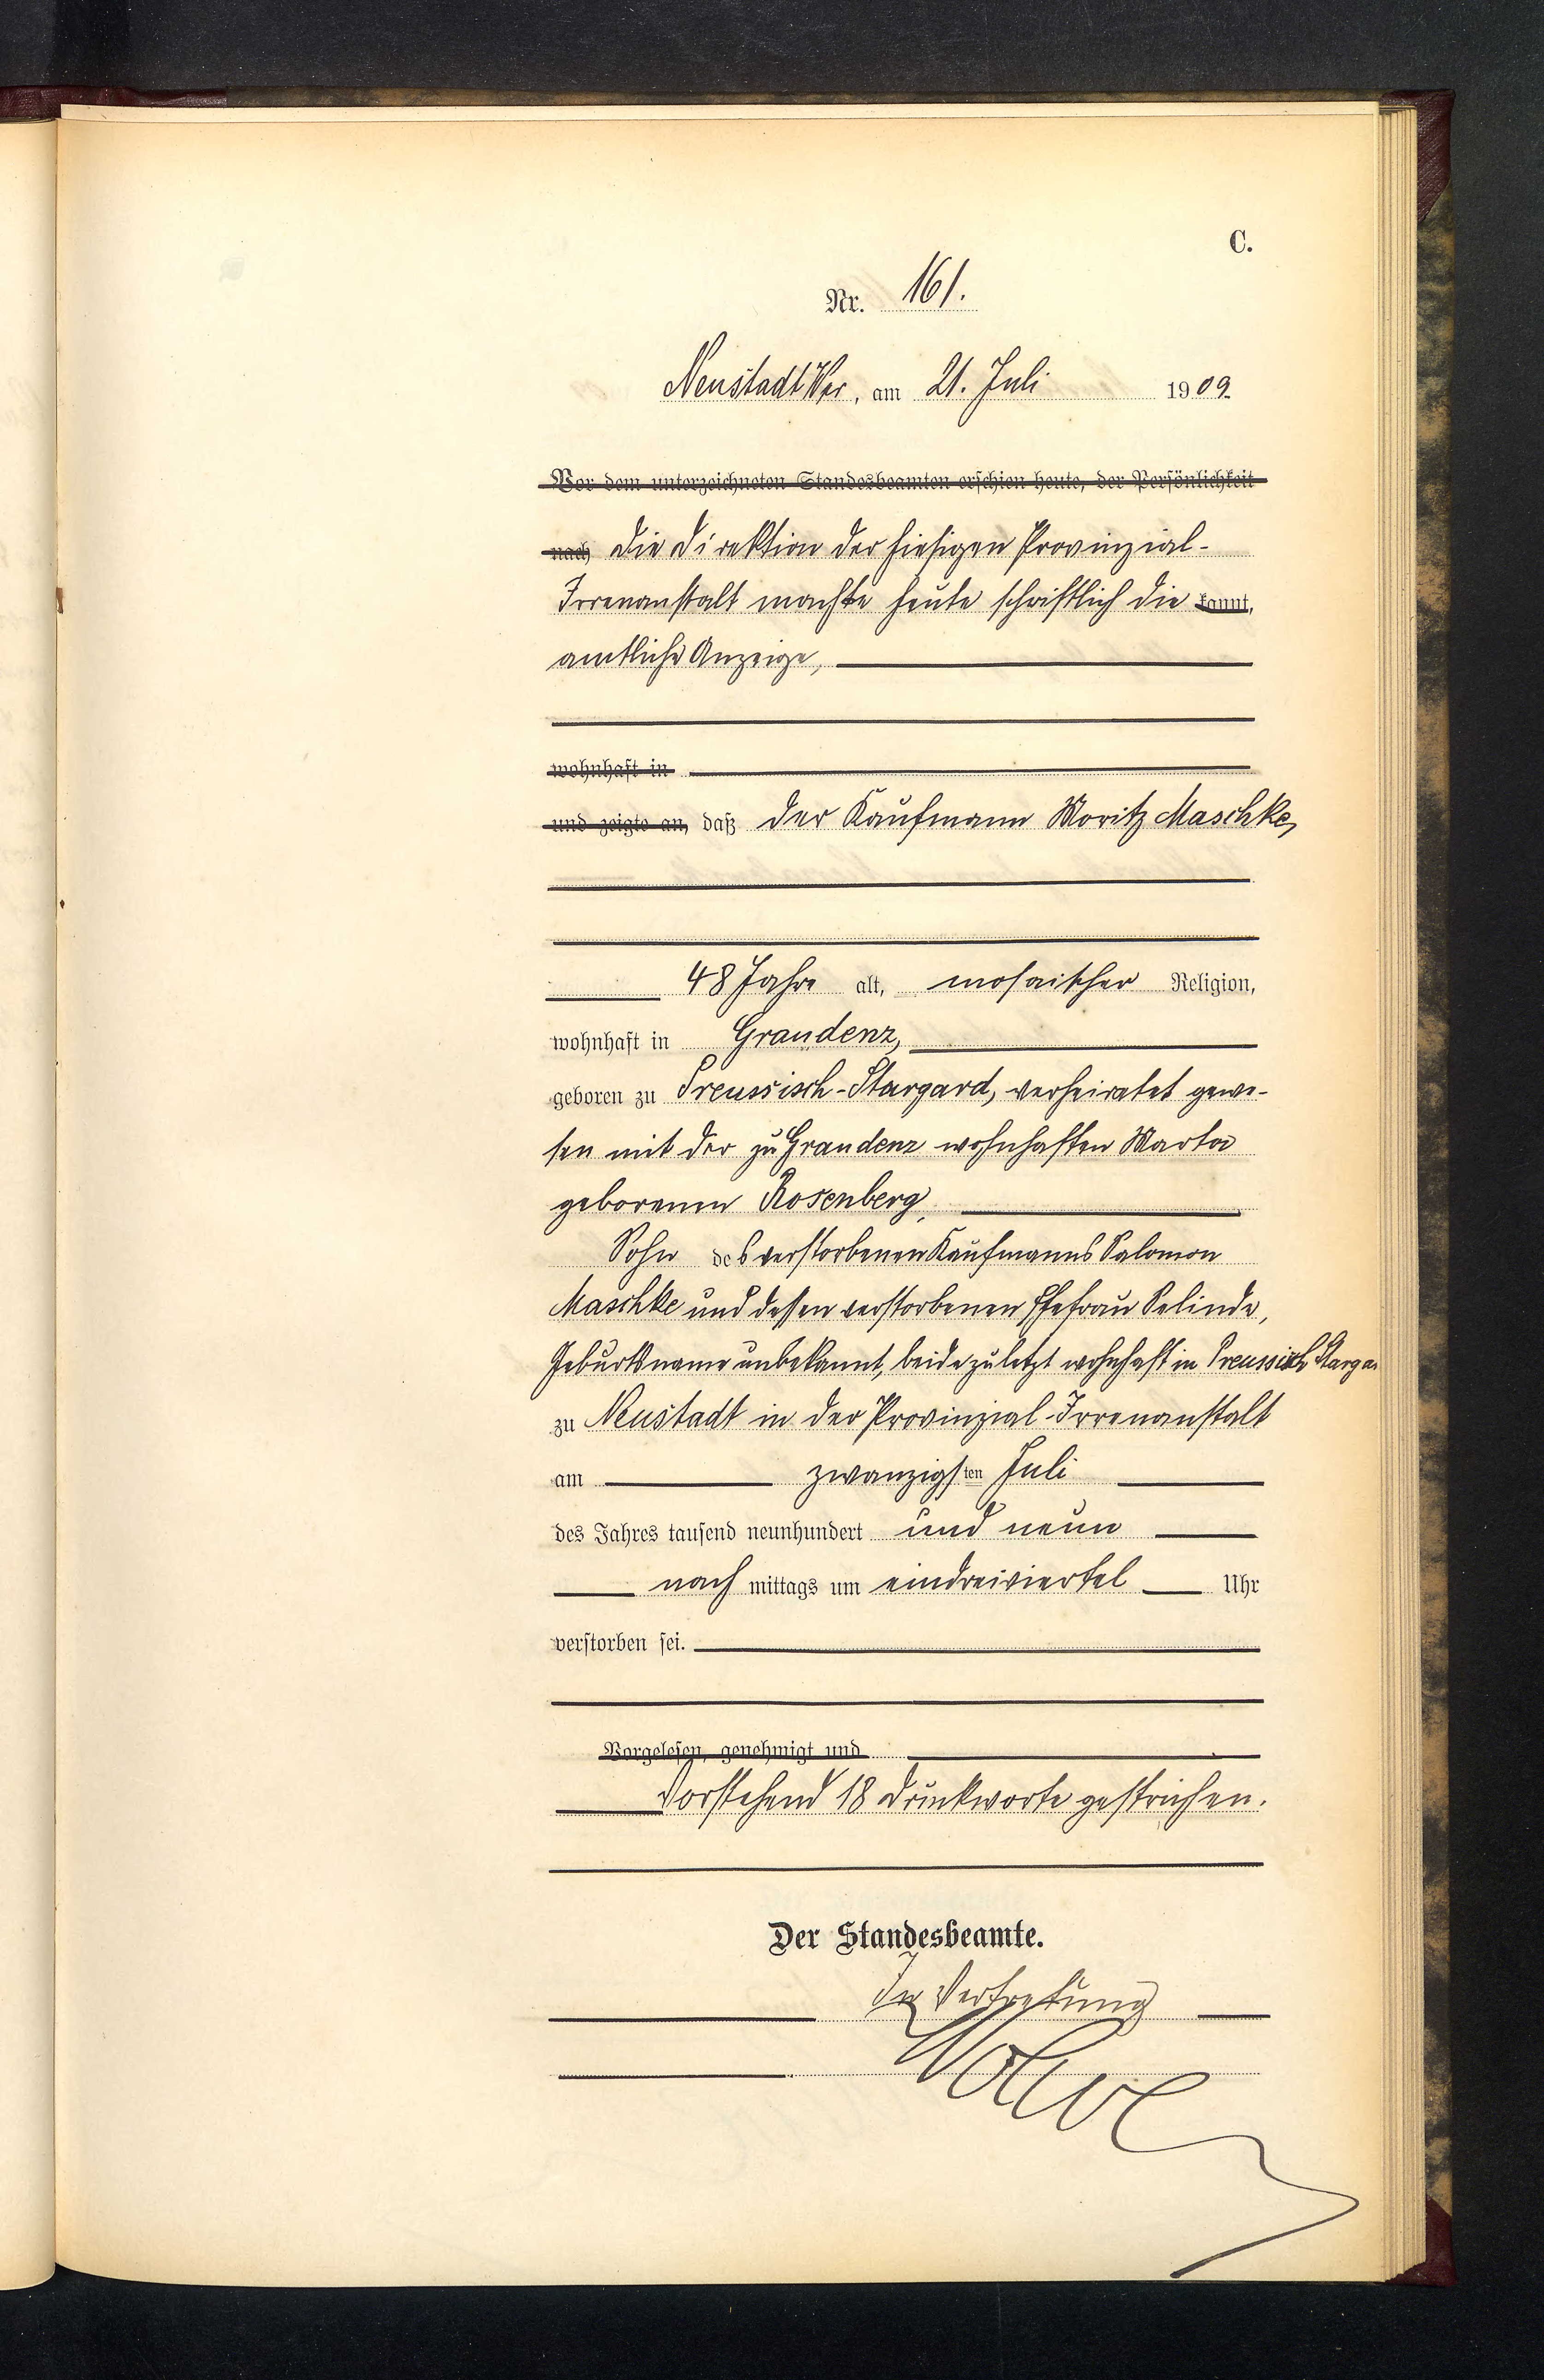 C.
Nr. 161.
Neustadt Wpr., am 21. Juli 1909.
Vor dem unterzeichneten Standesbeamten erschien heute, der Persönlichkeit
nach die Direktion der hiesigen Provinzial-
Irrenanstalt machte heute schriftlich die kannt,
amtliche Anzeige,
wohnhaft in
und zeigte an, daß der Kaufmann Moritz Maschke,
48 Jahre alt, mosaischer Religion,
wohnhaft in Graudenz,
geboren zu Preussisch-Stargard, verheiratet gewe-
sen mit der zu Graudenz wohnhaften Marta
geborenen Rosenberg,
Sohn des verstorbenen Kaufmanns Salomon
Maschke und dessen verstorbenen Ehefrau Selinde,
Geburtsname unbekannt, beide zuletzt wohnhaft in Preussisch Stargar
zu Neustadt in der Provinzial-Irrenanstalt
am zwanzigsten Juli
des Jahres tausend neunhundert und neun
nach mittags um eindreiviertel Uhr
verstorben sei.
Vorgelesen, genehmigt und
Vorstehend 18 Druckworte gestrichen.
Der Standesbeamte.
In Vertretung